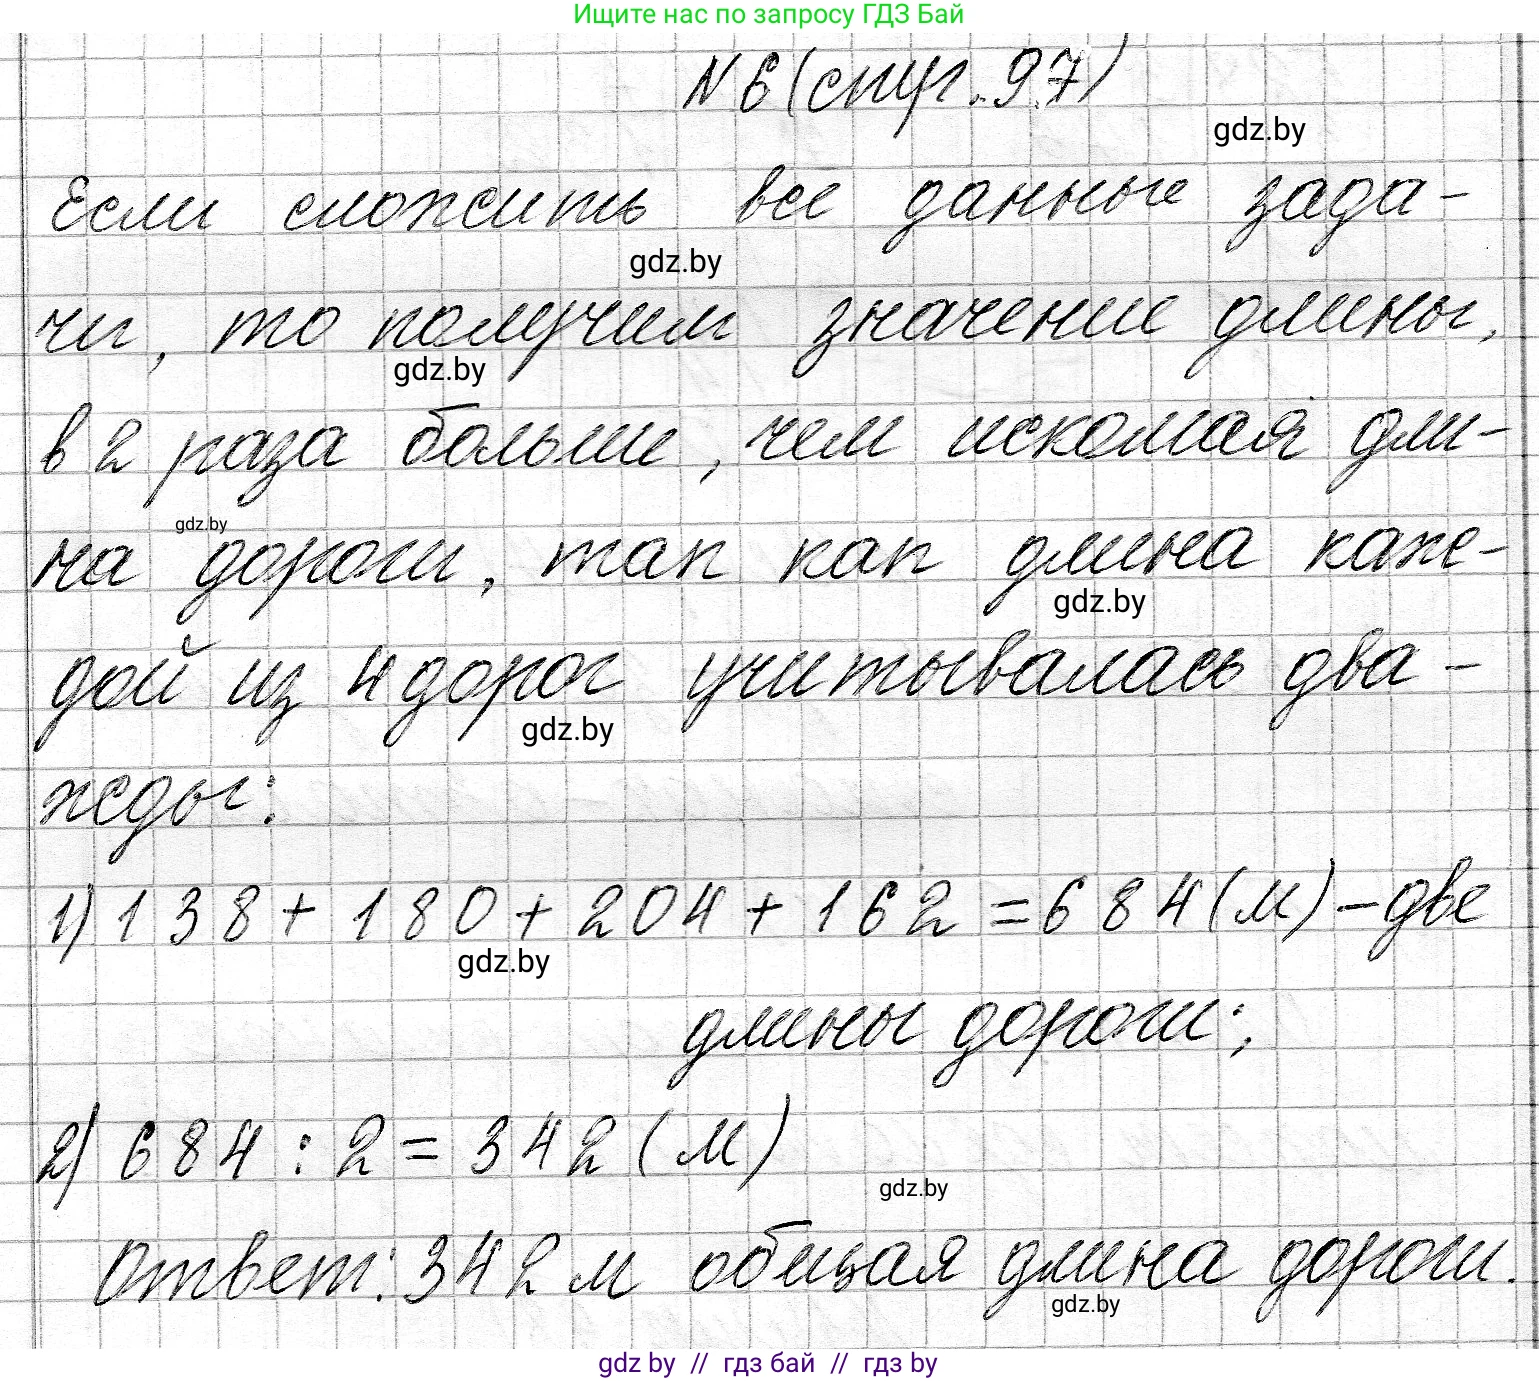 Ищите нас по запросу ГДЗ Бай
№6 (стр. 97)
gdz.by
Если сложить все данные зада-
gdz.by
чи, то получим значение длины,
gdz.by
в 2 раза больше, чем искомая дли-
gdz.by
на дороги, так как длина каж-
gdz.by
дой из 4 дорог учитывалась два-
gdz.by
жды:
1) 138 + 180 + 204 + 162 = 684 (м) - две
gdz.by
длины дороги;
2) 684 : 2 = 342 (м)
gdz.by
Ответ: 342 м общая длина дороги.
gdz.by
gdz by // гдз бай // gdz by